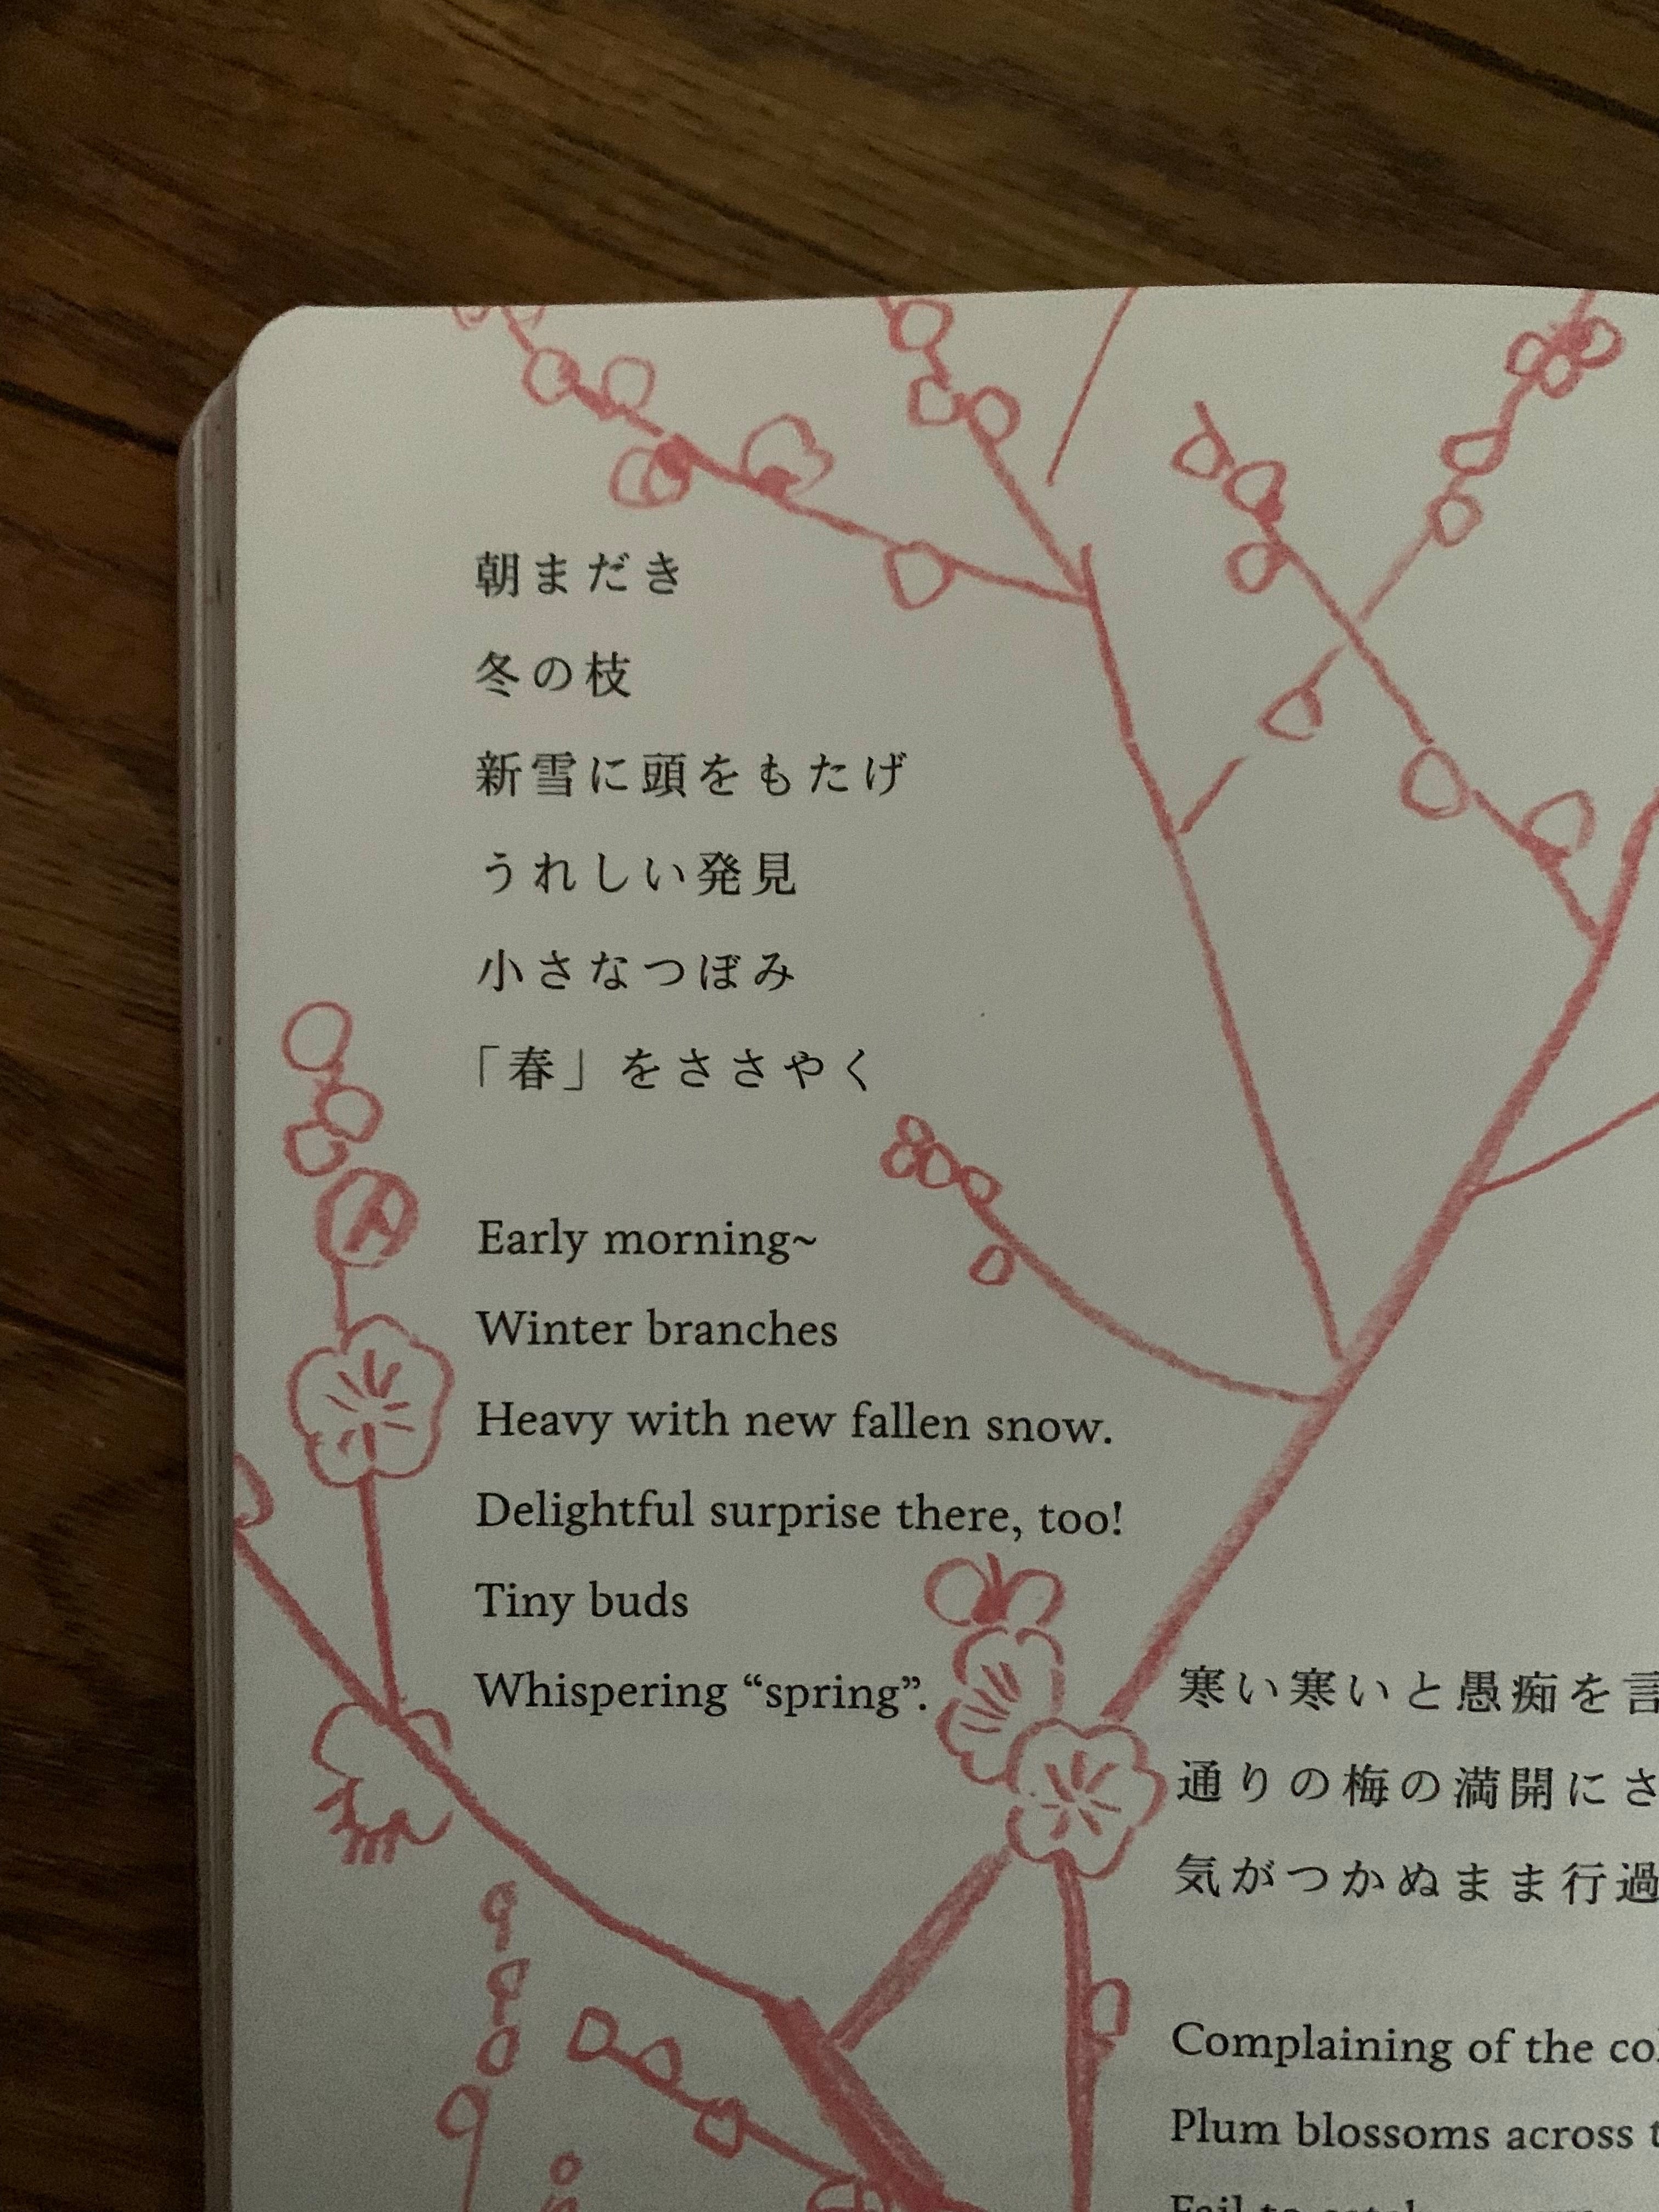 朝まだき
冬の枝
新雪に頭をもたげ
うれしい発見
小さなつぼみ
「春」をささやく
Early morning~
Winter branches
Heavy with new fallen snow.
Delightful surprise there, too!
Tiny buds
Whispering “spring”.
寒い寒いと愚痴を言
通りの梅の満開にさ
気がつかぬまま行過
Complaining of the
Plum blossoms across